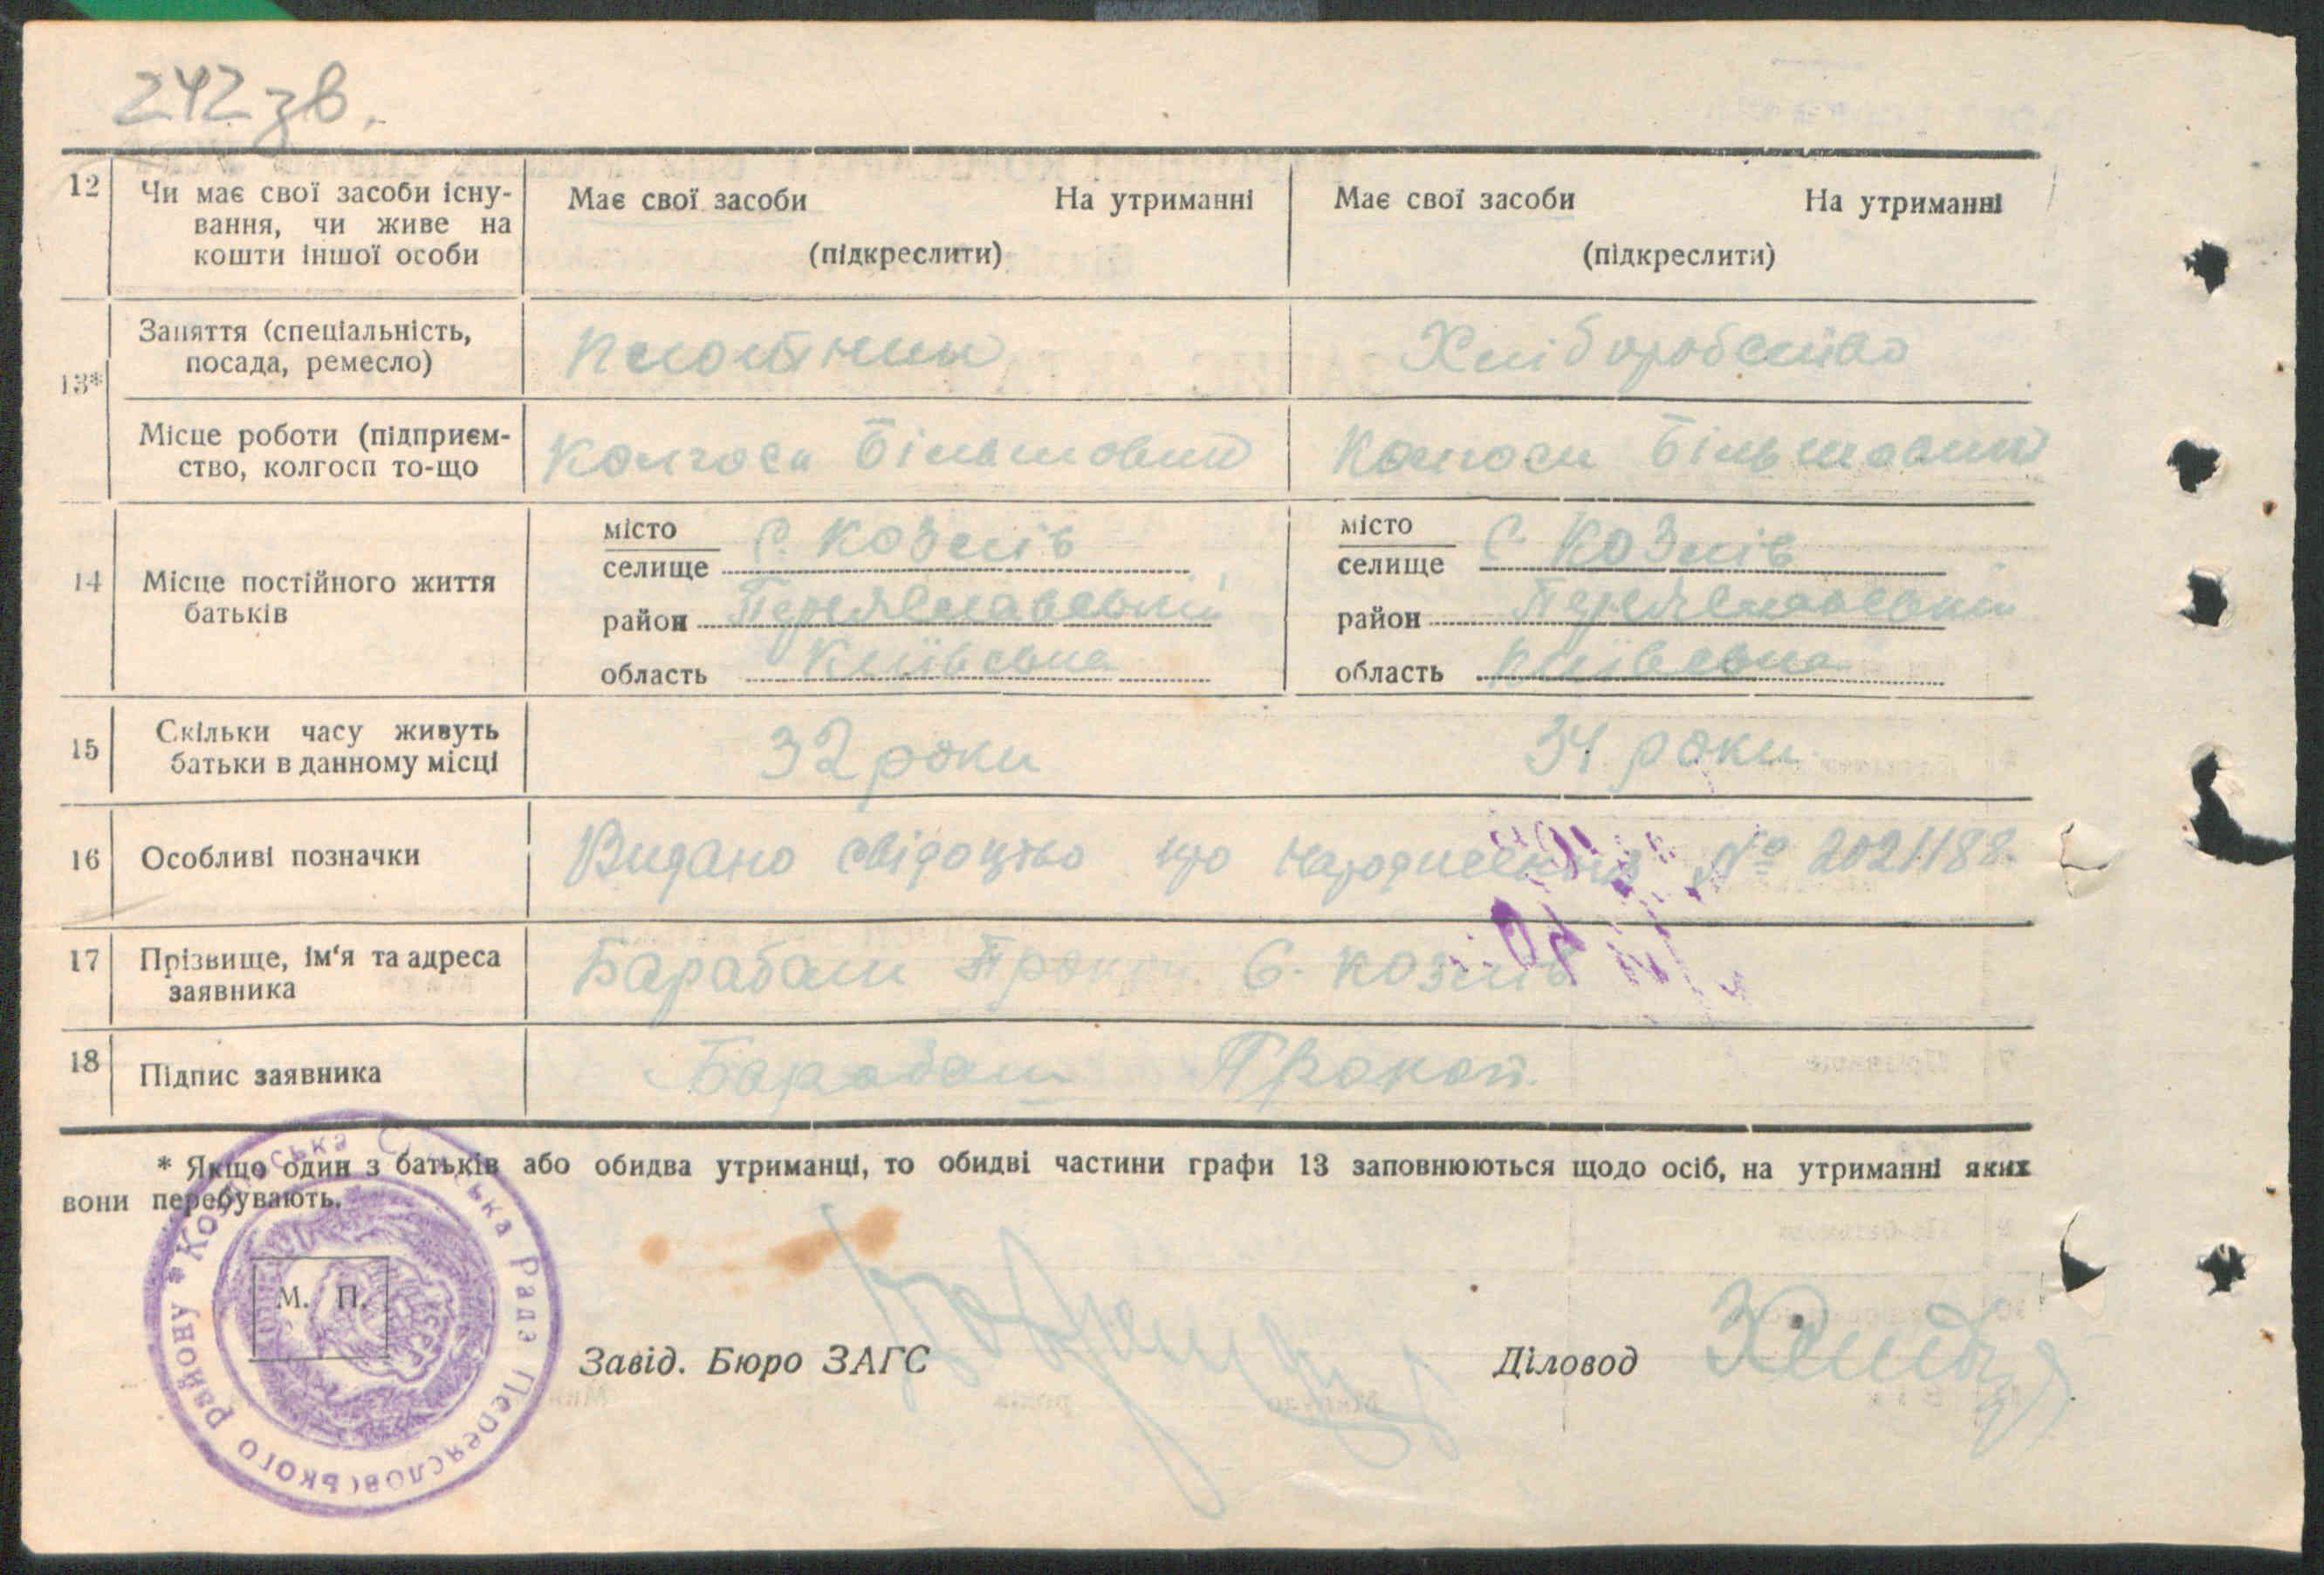 242 зв.
12 Чи має свої засоби існу- Має свої засоби На утриманні Має свої засоби На утриманні
вання, чи живе на
кошти іншої особи (підкреслити) (підкреслити)
Заняття (спеціальність, Плотник Хліборобство
13* посада, ремесло)
Місце роботи (підприєм- Колгосп Більшовик Колгосп Більшовик
ство, колгосп то-що
місто с. Козлів місто с. Козлів
селище селище
14 Місце постійного життя район Переяславський район Переяславський
батьків
область Київська область Київська
15 Скільки часу живуть 32 роки 34 роки
батьки в данному місці
16 Особливі позначки Видано свідоцтво про народження № 2021188.
17 Прізвище, ім'я та адреса Барабаш Прокіп с. Козлів
заявника
18 Підпис заявника Барабаш Прокоп.
* Якщо один з батьків або обидва утриманці, то обидві частини графи 13 заповнюються щодо осіб, на утриманні яких
вони перебувають.
Козлівська Сільська Рада Переясловського району *
М. П.
Завід. Бюро ЗАГС Діловод